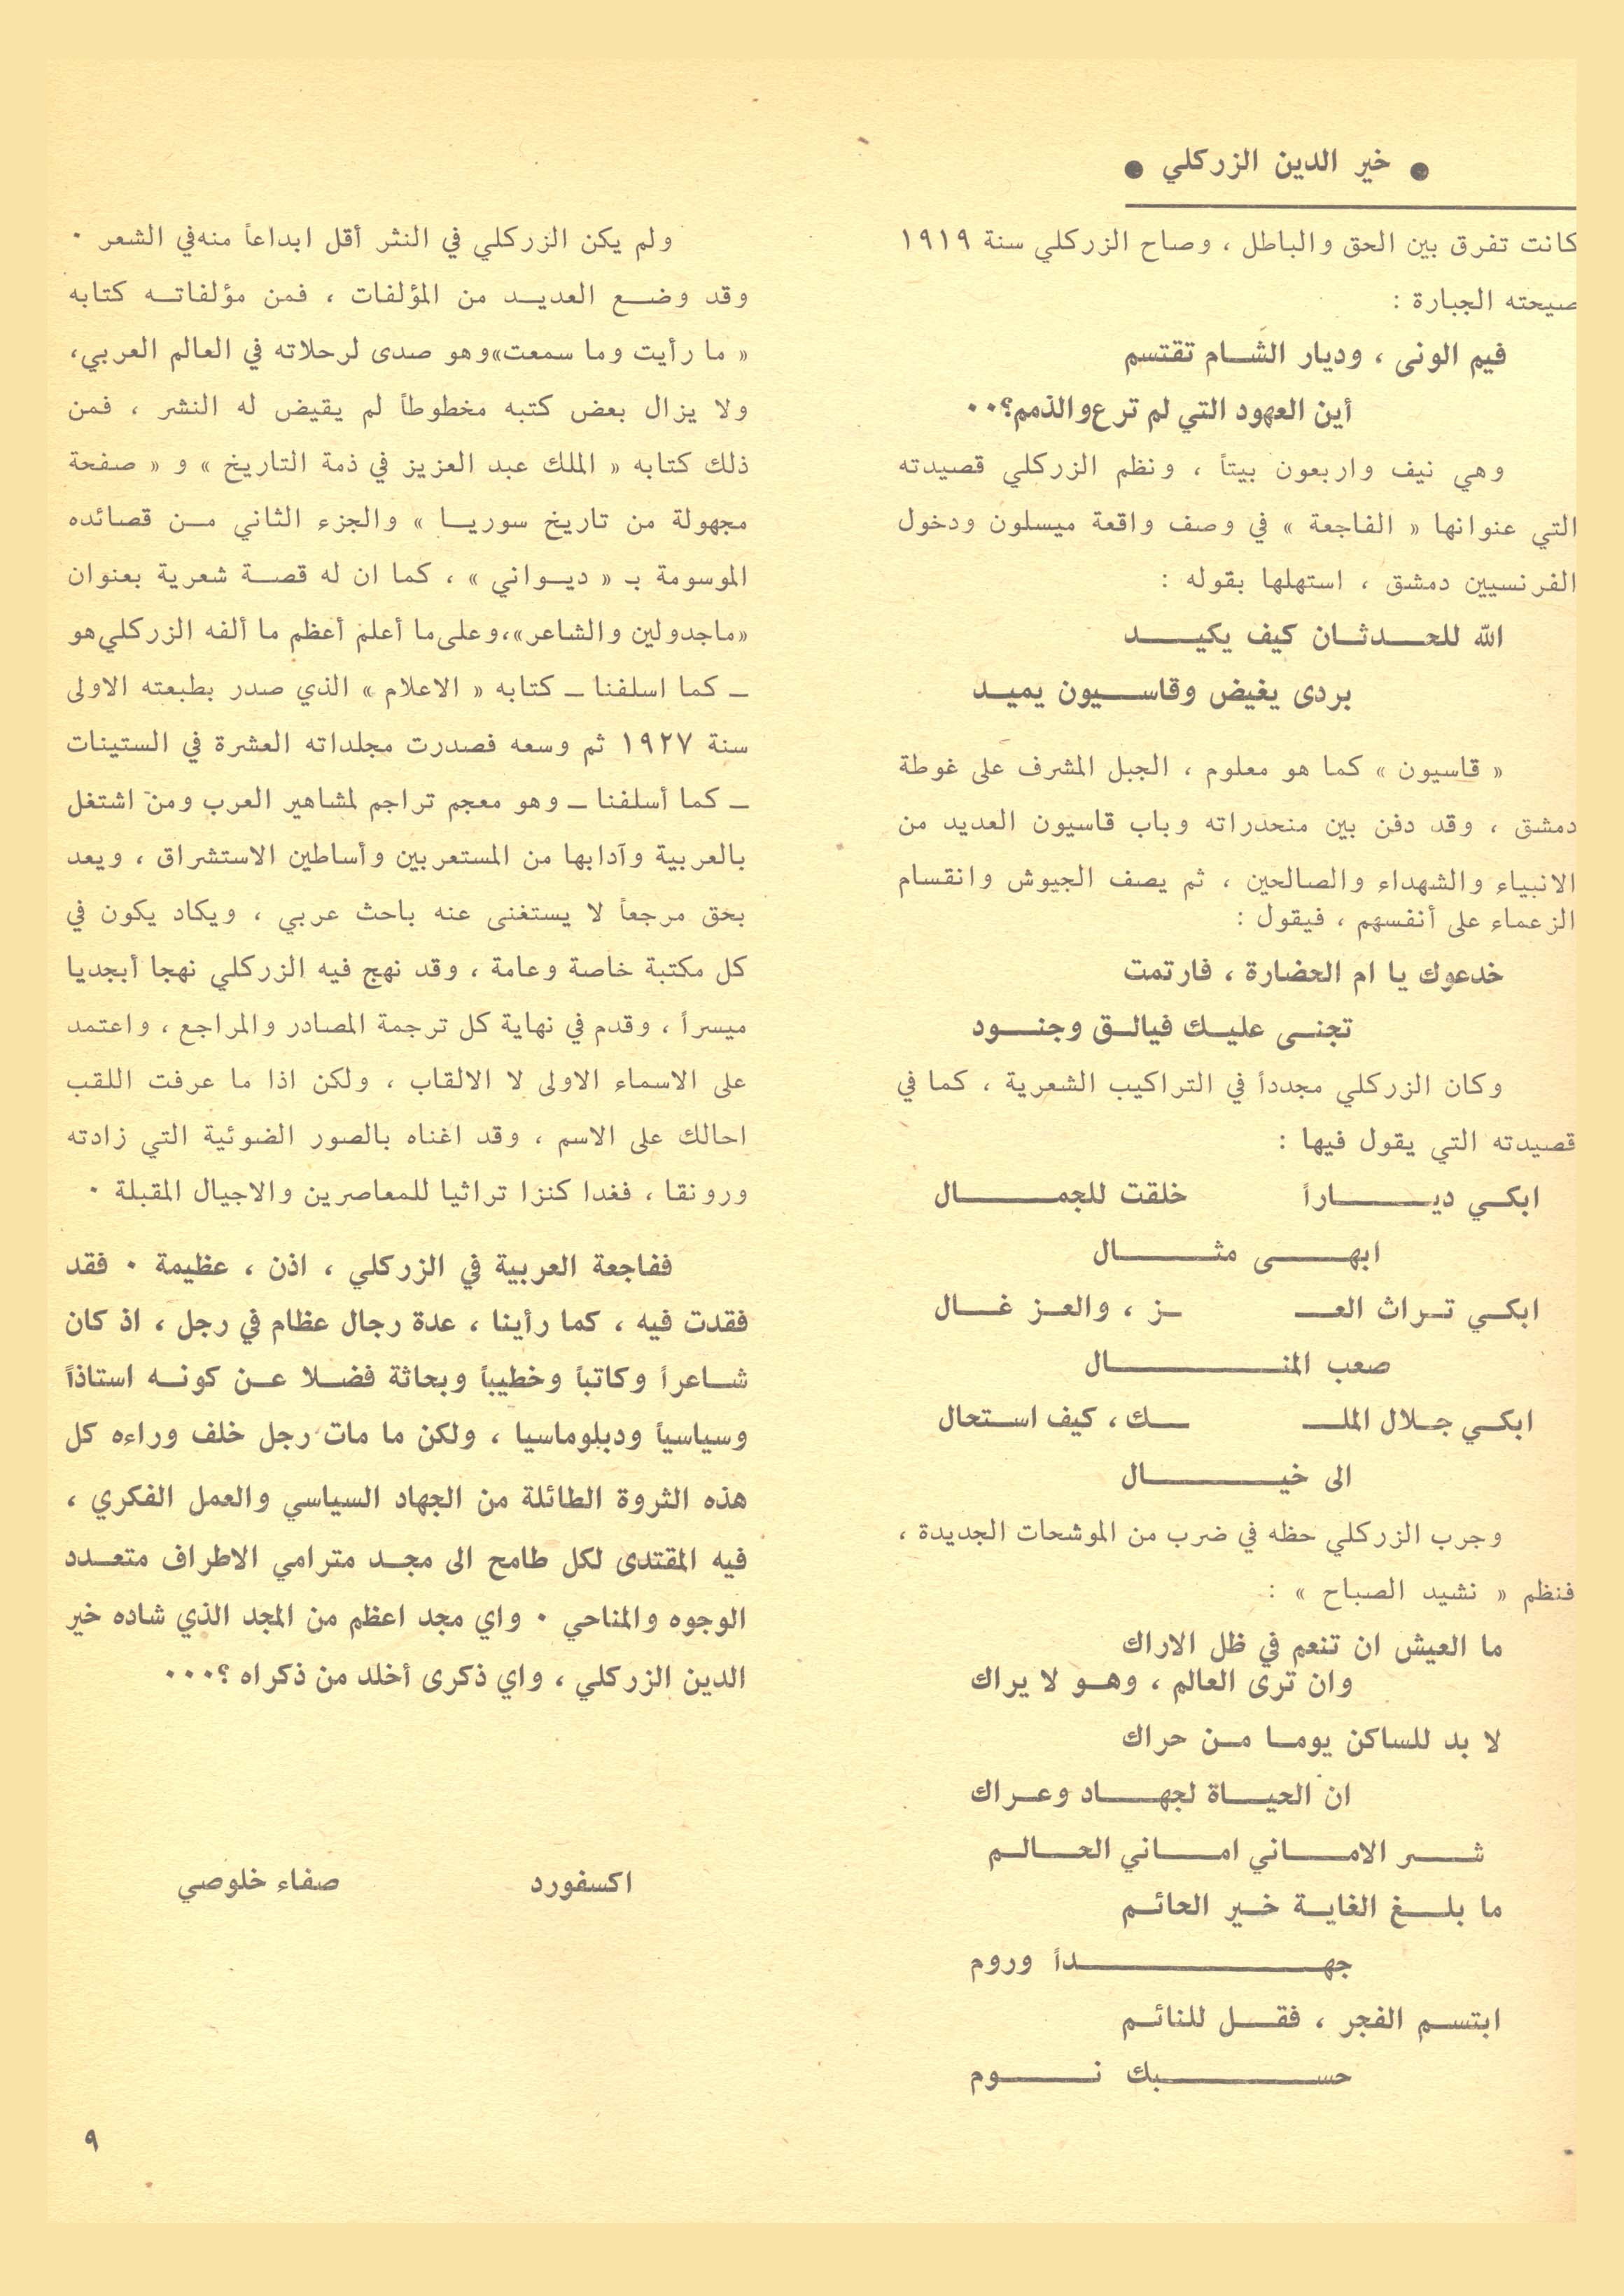 ● خير الدين الزركلي ●
كانت تفرق بين الحق والباطل ، وصاح الزركلي سنة ١٩١٩
صيحته الجبارة :
فيم الونى ، وديار الشام تقتسم
أين العهود التي لم ترع والذمم؟٠٠
وهي نيف واربعون بيتاً ، ونظم الزركلي قصيدته
التي عنوانها « الفاجعة » في وصف واقعة ميسلون ودخول
الفرنسيين دمشق ، استهلها بقوله :
الله للحدثان كيف يكيد
بردى يغيض وقاسيون يميد
« قاسيون » كما هو معلوم ، الجبل المشرف على غوطة
دمشق ، وقد دفن بين منحدراته وباب قاسيون العديد من
الانبياء والشهداء والصالحين ، ثم يصف الجيوش وانقسام
الزعماء على أنفسهم ، فيقول :
خدعوك يا ام الحضارة ، فارتمت
تجنى عليك فيالق وجنود
وكان الزركلي مجدداً في التراكيب الشعرية ، كما في
قصيدته التي يقول فيها :
ابكي دياراً خلقت للجمال
ابهى مثال
ابكي تراث العـ ـز ، والعز غال
صعب المنال
ابكي جلال الملـ ـك ، كيف استحال
الى خيال
وجرب الزركلي حظه في ضرب من الموشحات الجديدة ،
فنظم « نشيد الصباح » :
ما العيش ان تنعم في ظل الاراك
وان ترى العالم ، وهو لا يراك
لا بد للساكن يوما من حراك
ان الحياة لجهاد وعراك
شر الاماني اماني الحالم
ما بلغ الغاية خير الحائم
جهداً وروم
ابتسم الفجر ، فقل للنائم
حسبك نوم
ولم يكن الزركلي في النثر أقل ابداعاً منه في الشعر ٠
وقد وضع العديد من المؤلفات ، فمن مؤلفاته كتابه
« ما رأيت وما سمعت» وهو صدى لرحلاته في العالم العربي،
ولا يزال بعض كتبه مخطوطاً لم يقيض له النشر ، فمن
ذلك كتابه « الملك عبد العزيز في ذمة التاريخ » و « صفحة
مجهولة من تاريخ سوريا » والجزء الثاني من قصائده
الموسومة بـ « ديواني » ، كما ان له قصة شعرية بعنوان
«ماجدولين والشاعر»، وعلى ما أعلم أعظم ما ألفه الزركلي هو
ـ كما اسلفنا ـ كتابه « الاعلام » الذي صدر بطبعته الاولى
سنة ١٩٢٧ ثم وسعه فصدرت مجلداته العشرة في الستينات
ـ كما أسلفنا ـ وهو معجم تراجم لمشاهير العرب ومن اشتغل
بالعربية وآدابها من المستعربين وأساطين الاستشراق ، ويعد
بحق مرجعاً لا يستغنى عنه باحث عربي ، ويكاد يكون في
كل مكتبة خاصة وعامة ، وقد نهج فيه الزركلي نهجا أبجديا
ميسراً ، وقدم في نهاية كل ترجمة المصادر والمراجع ، واعتمد
على الاسماء الاولى لا الالقاب ، ولكن اذا ما عرفت اللقب
احالك على الاسم ، وقد اغناه بالصور الضوئية التي زادته
ورونقا ، فغدا كنزا تراثيا للمعاصرين والاجيال المقبلة ٠
ففاجعة العربية في الزركلي ، اذن ، عظيمة ٠ فقد
فقدت فيه ، كما رأينا ، عدة رجال عظام في رجل ، اذ كان
شاعراً وكاتباً وخطيباً وبحاثة فضلا عن كونه استاذاً
وسياسياً ودبلوماسيا ، ولكن ما مات رجل خلف وراءه كل
هذه الثروة الطائلة من الجهاد السياسي والعمل الفكري ،
فيه المقتدى لكل طامح الى مجد مترامي الاطراف متعدد
الوجوه والمناحي ٠ واي مجد اعظم من المجد الذي شاده خير
الدين الزركلي ، واي ذكرى أخلد من ذكراه ؟٠٠٠
اكسفورد صفاء خلوصي
٩